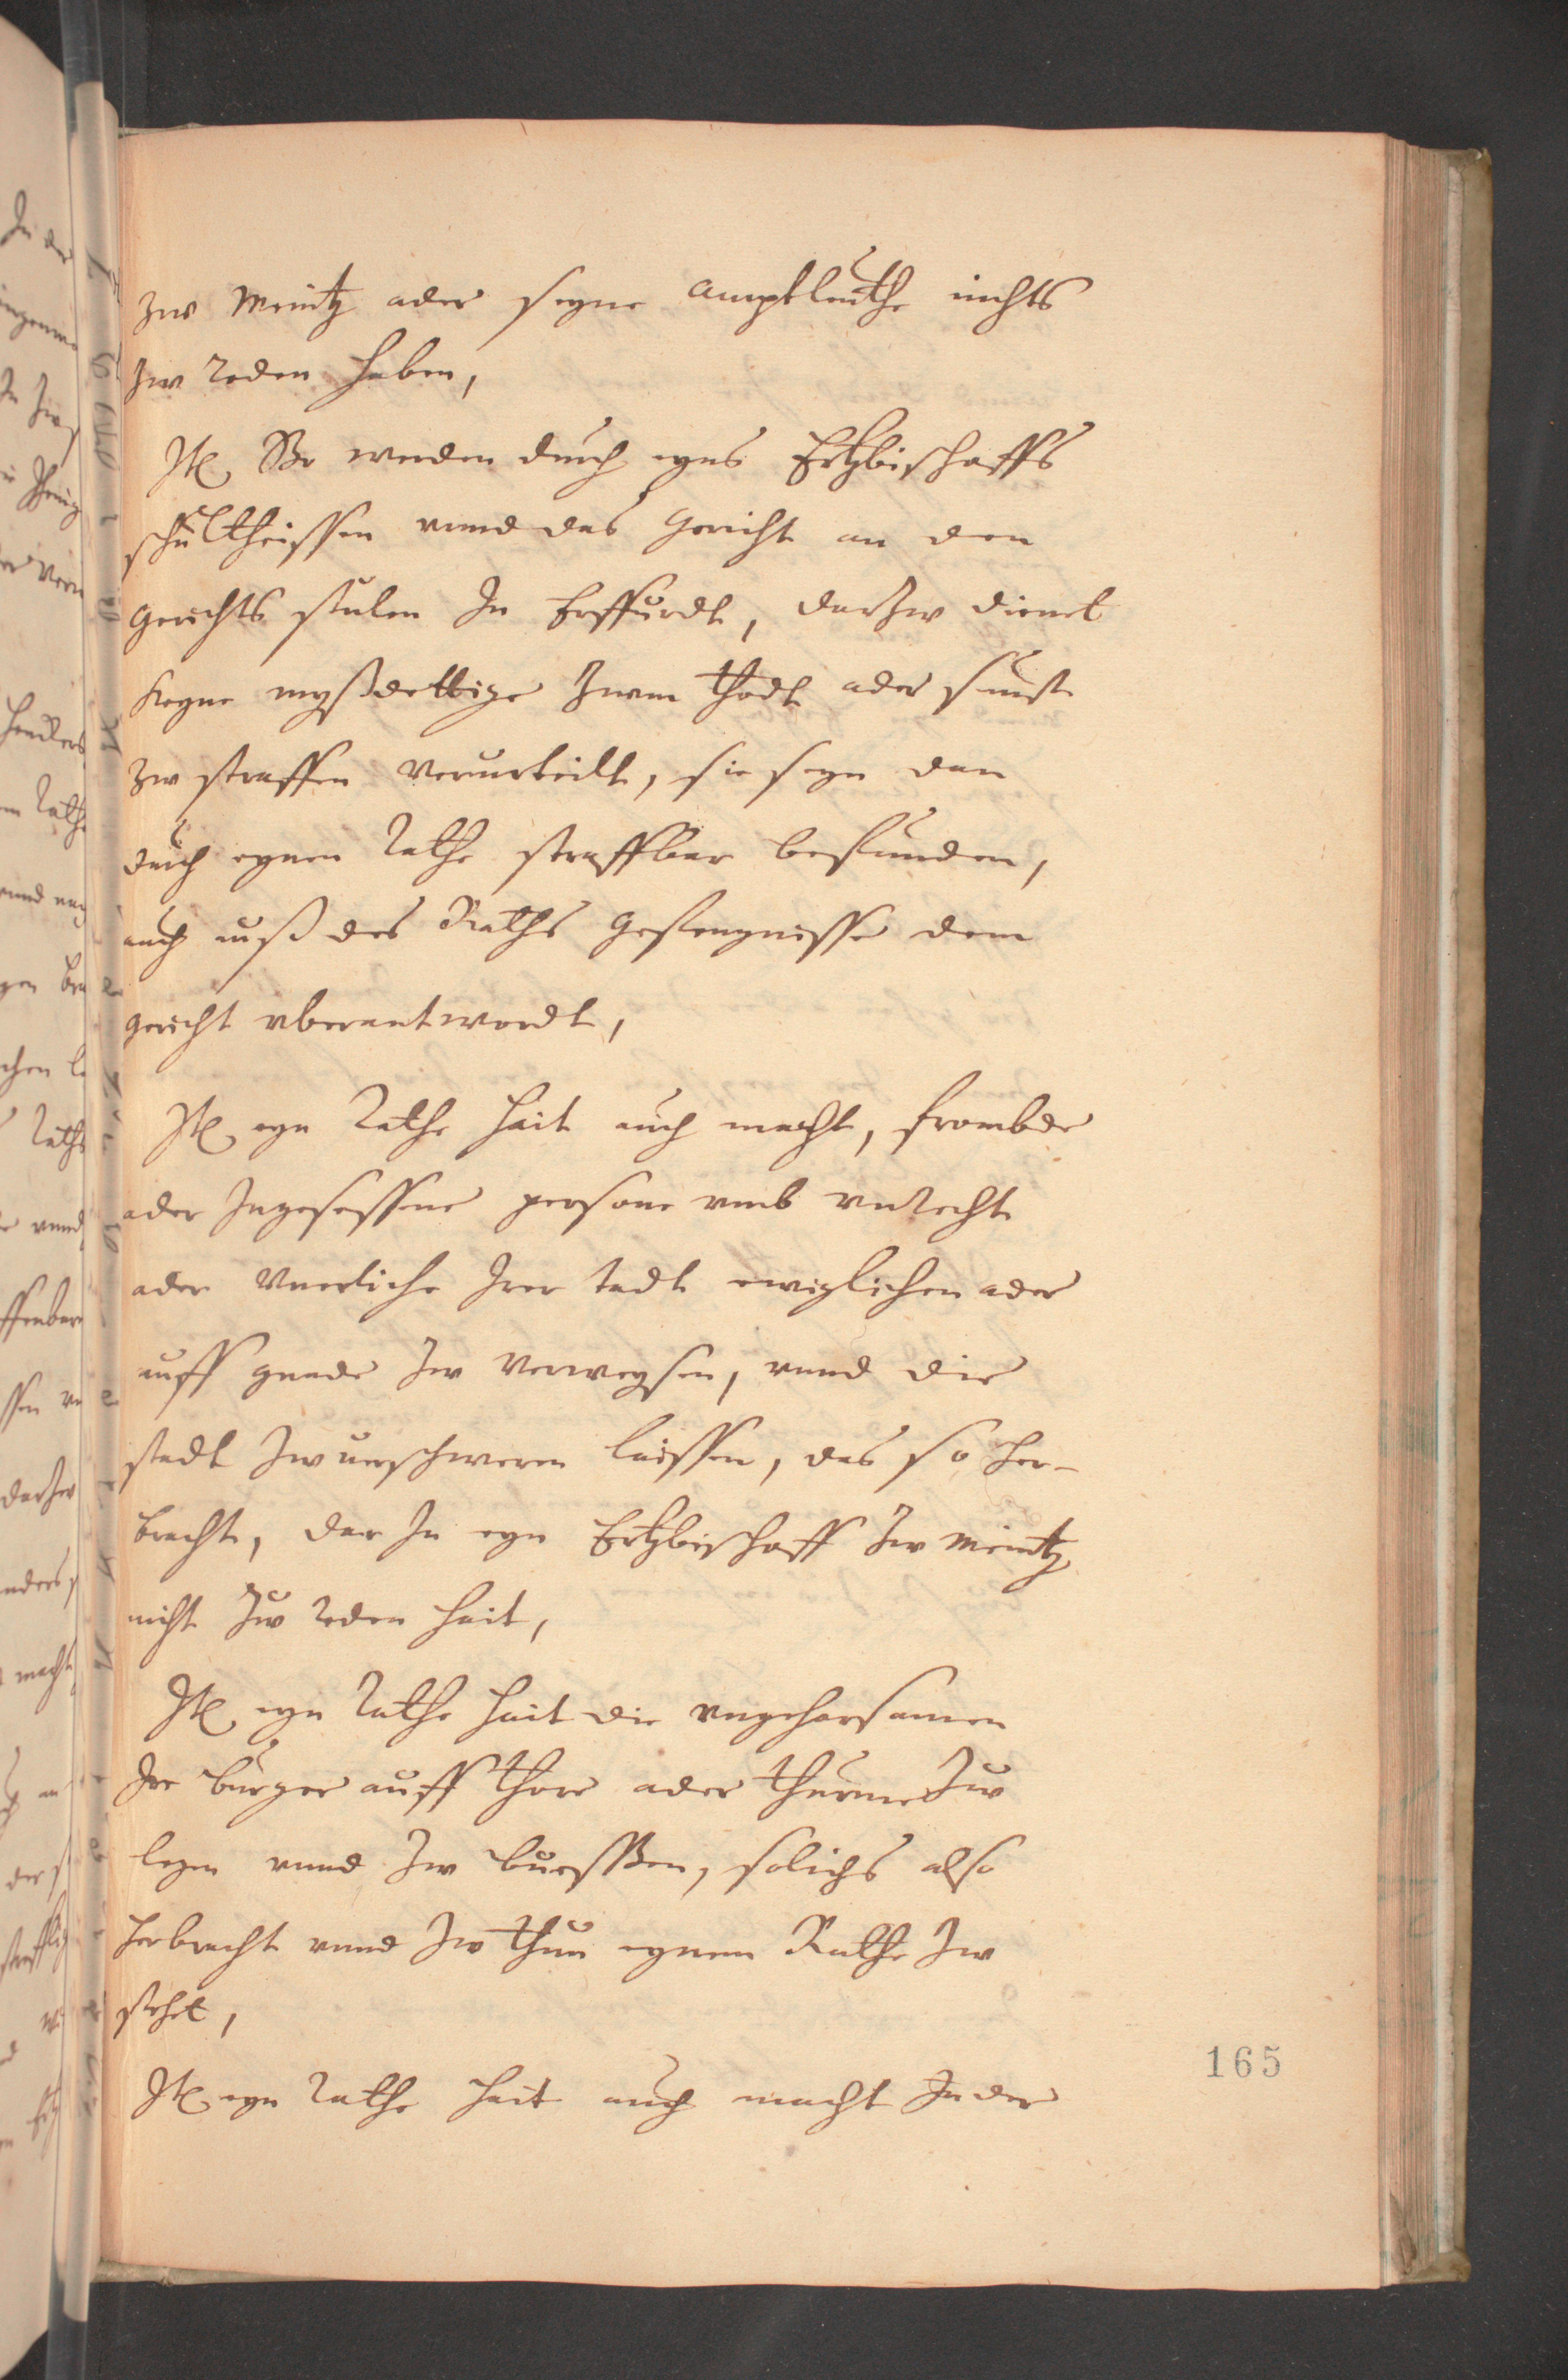 zw Meintz ader seyne amptleuthe nichts
zw reden haben,
Jt So werden durch eyns Ertzbischoffs
schultheissen vnnd das gericht an den
gerichts stulen In Erffurdt, darzw dienet
keyne myßdettige zwm thodt ader sunst
zw straffen verurteilt, sie seyn dan
durch eynen Rathe straffbar befunden,
auch auß des Raths gefengnisse dem
gericht vberantwordt,
Jt eyn Rathe hait auch macht, frombde
ader Ingesessene persone vmb vnrecht
ader vnerliche Irer tadt ewiglichen ader
auff gnade zw verweysen, vnnd die
stadt zwuerschweren laissen, das so her-
bracht, dar In eyn Ertzbischoff zw Meintz
nicht zw reden hait,
Jt eyn Rathe hait die vngehorsamen
Ire burger auff thore ader thurme zw
legen vnnd zw buessßen, solichs also
herbracht vnnd zw thun eynem Rathe zw
stehet,
Jt eyn Rathe hait auch macht In der
165